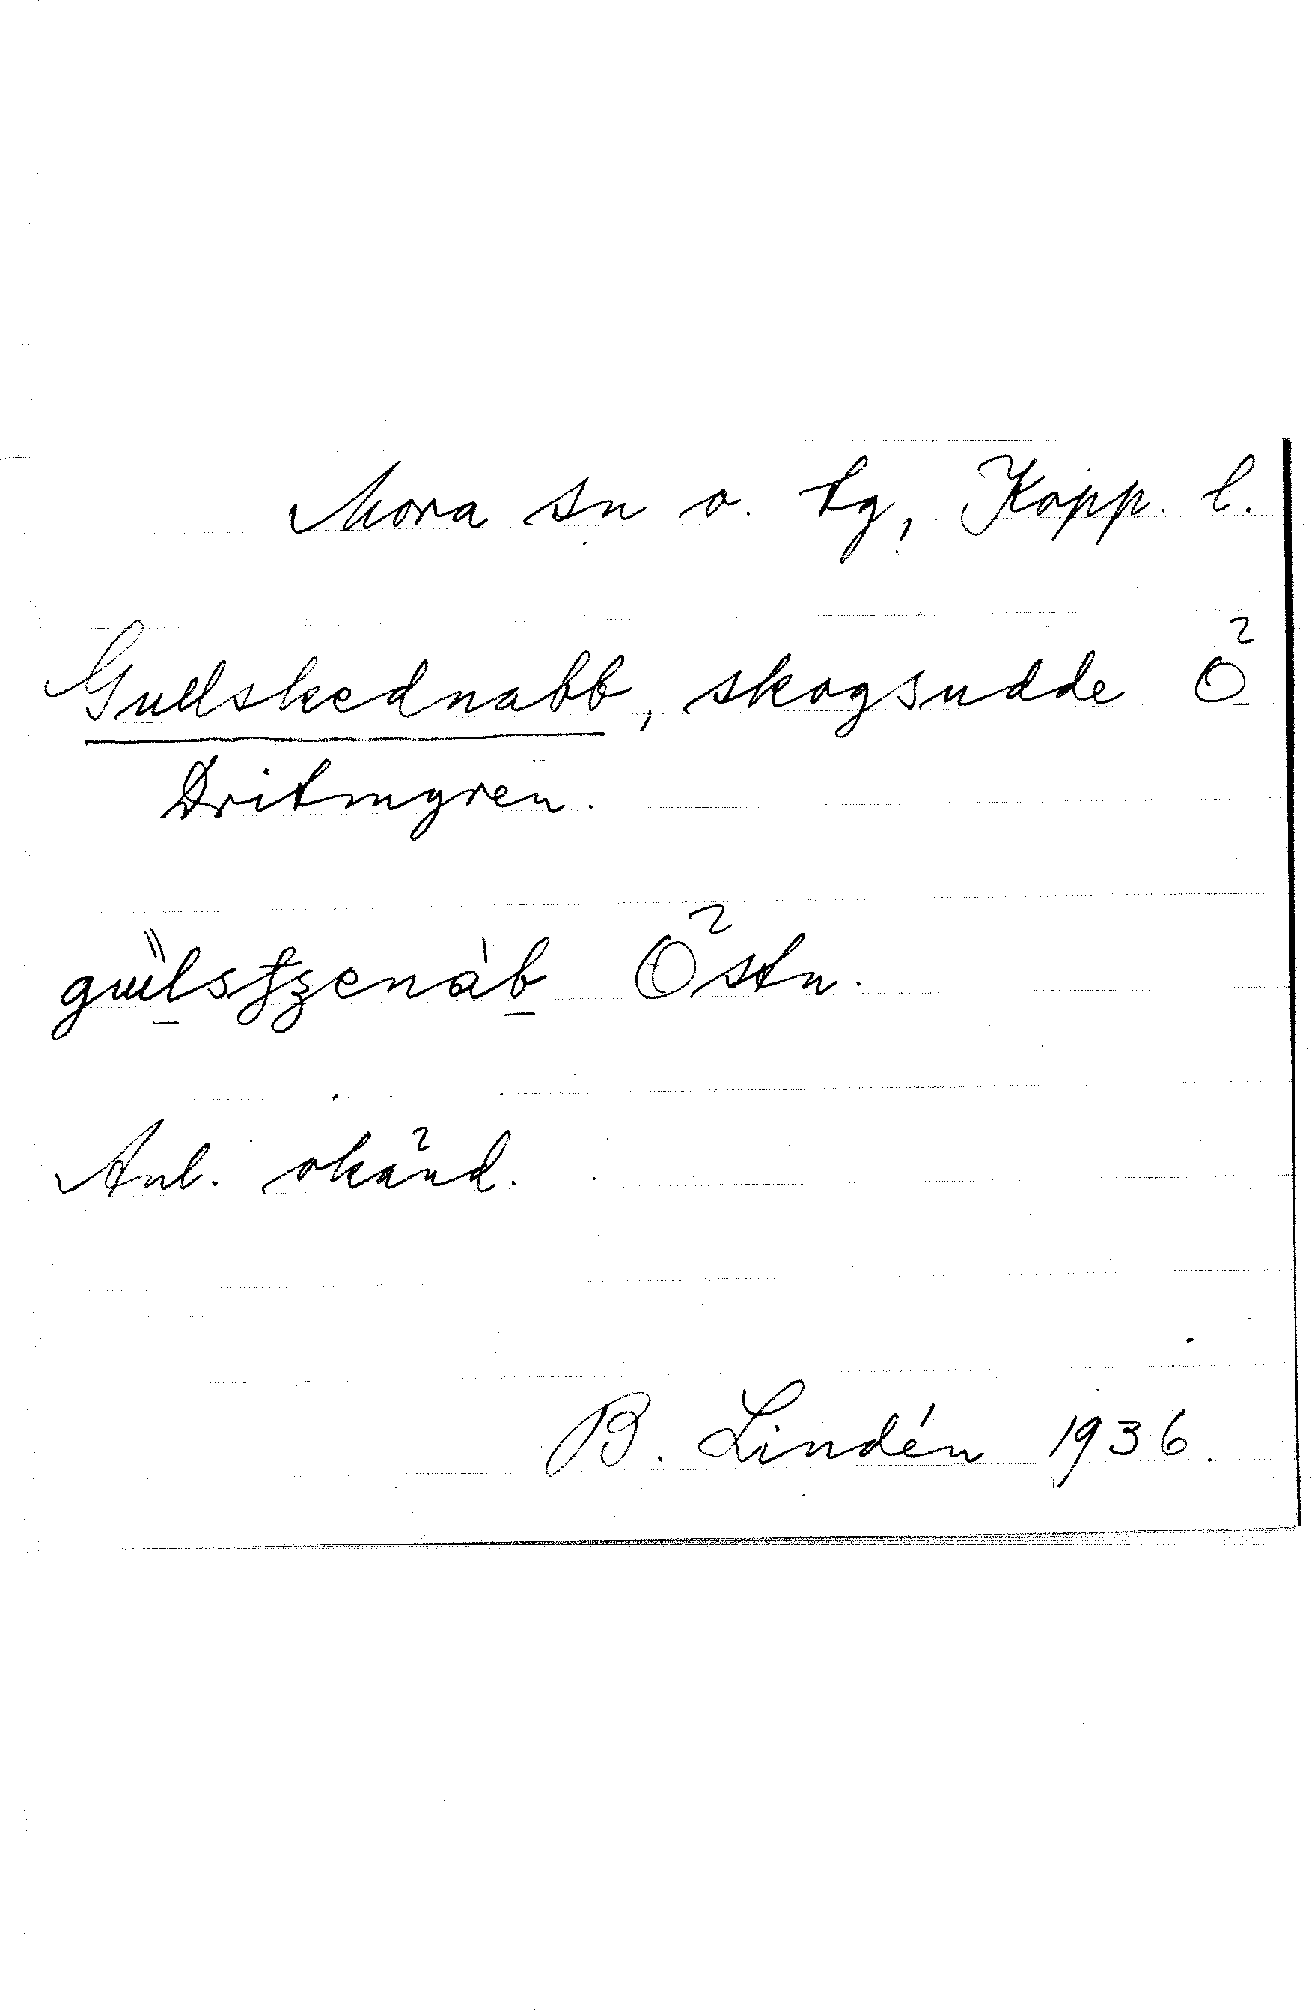 Mora sn o. tg, Kopp. l.
Gullskednabb, skogsudde Ö
Dritmyren.
Östn.
Anl. okänd.
B. Lindén 1936.